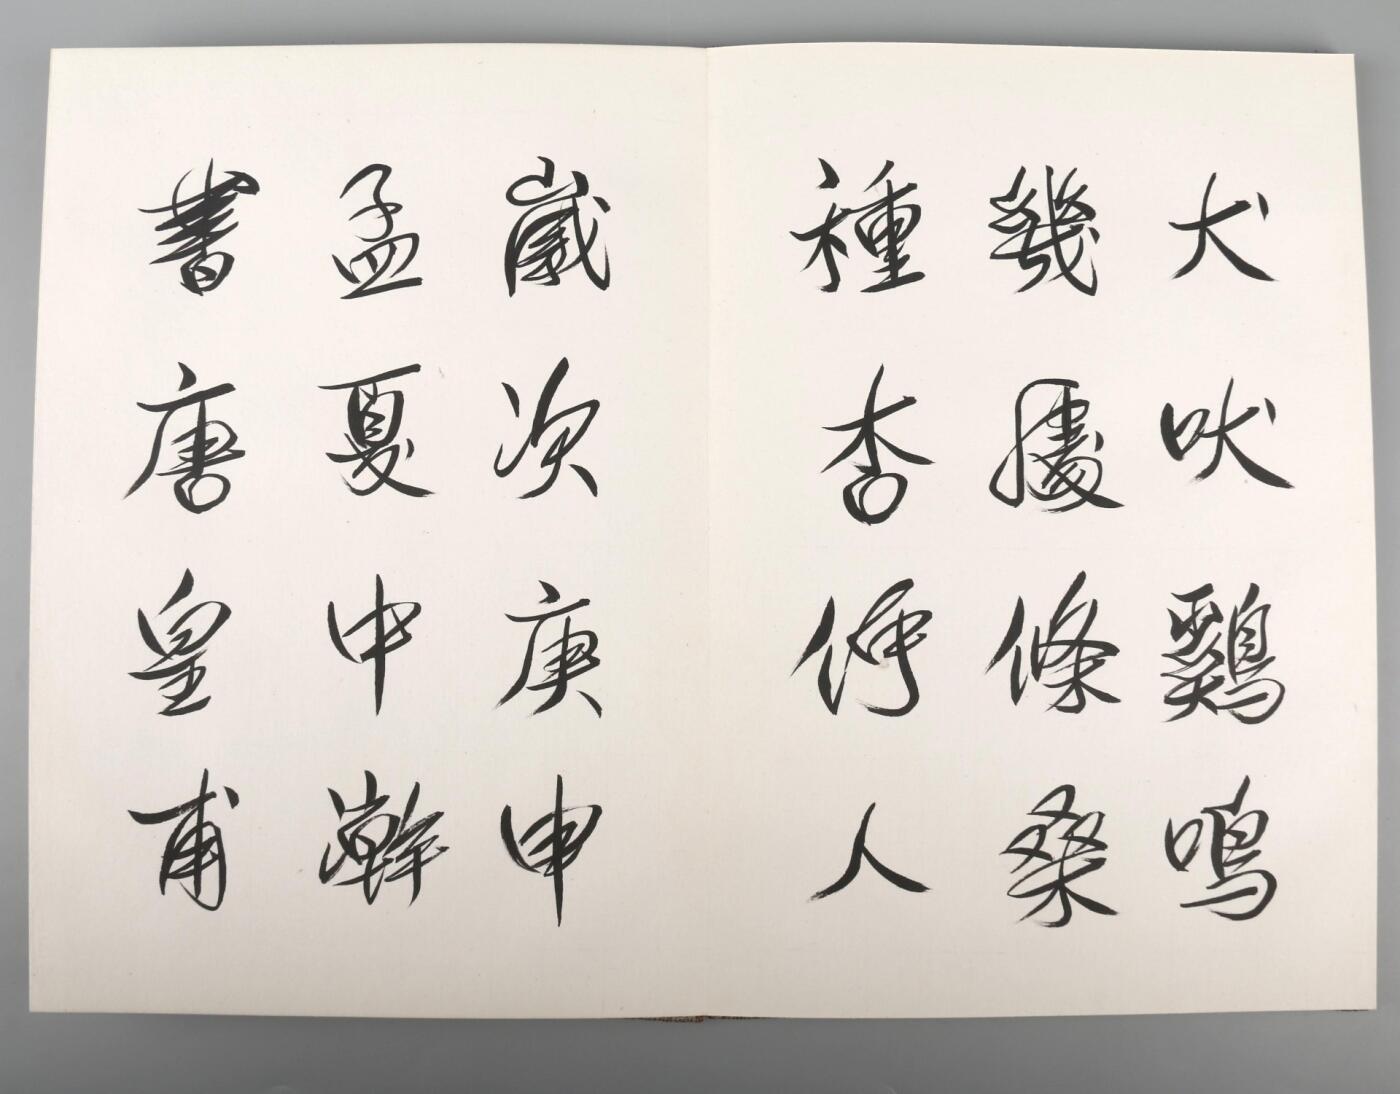 犬吠鷄鳴
幾處條桑
種杏何人
歲次庚申
孟夏中澣
書唐皇甫